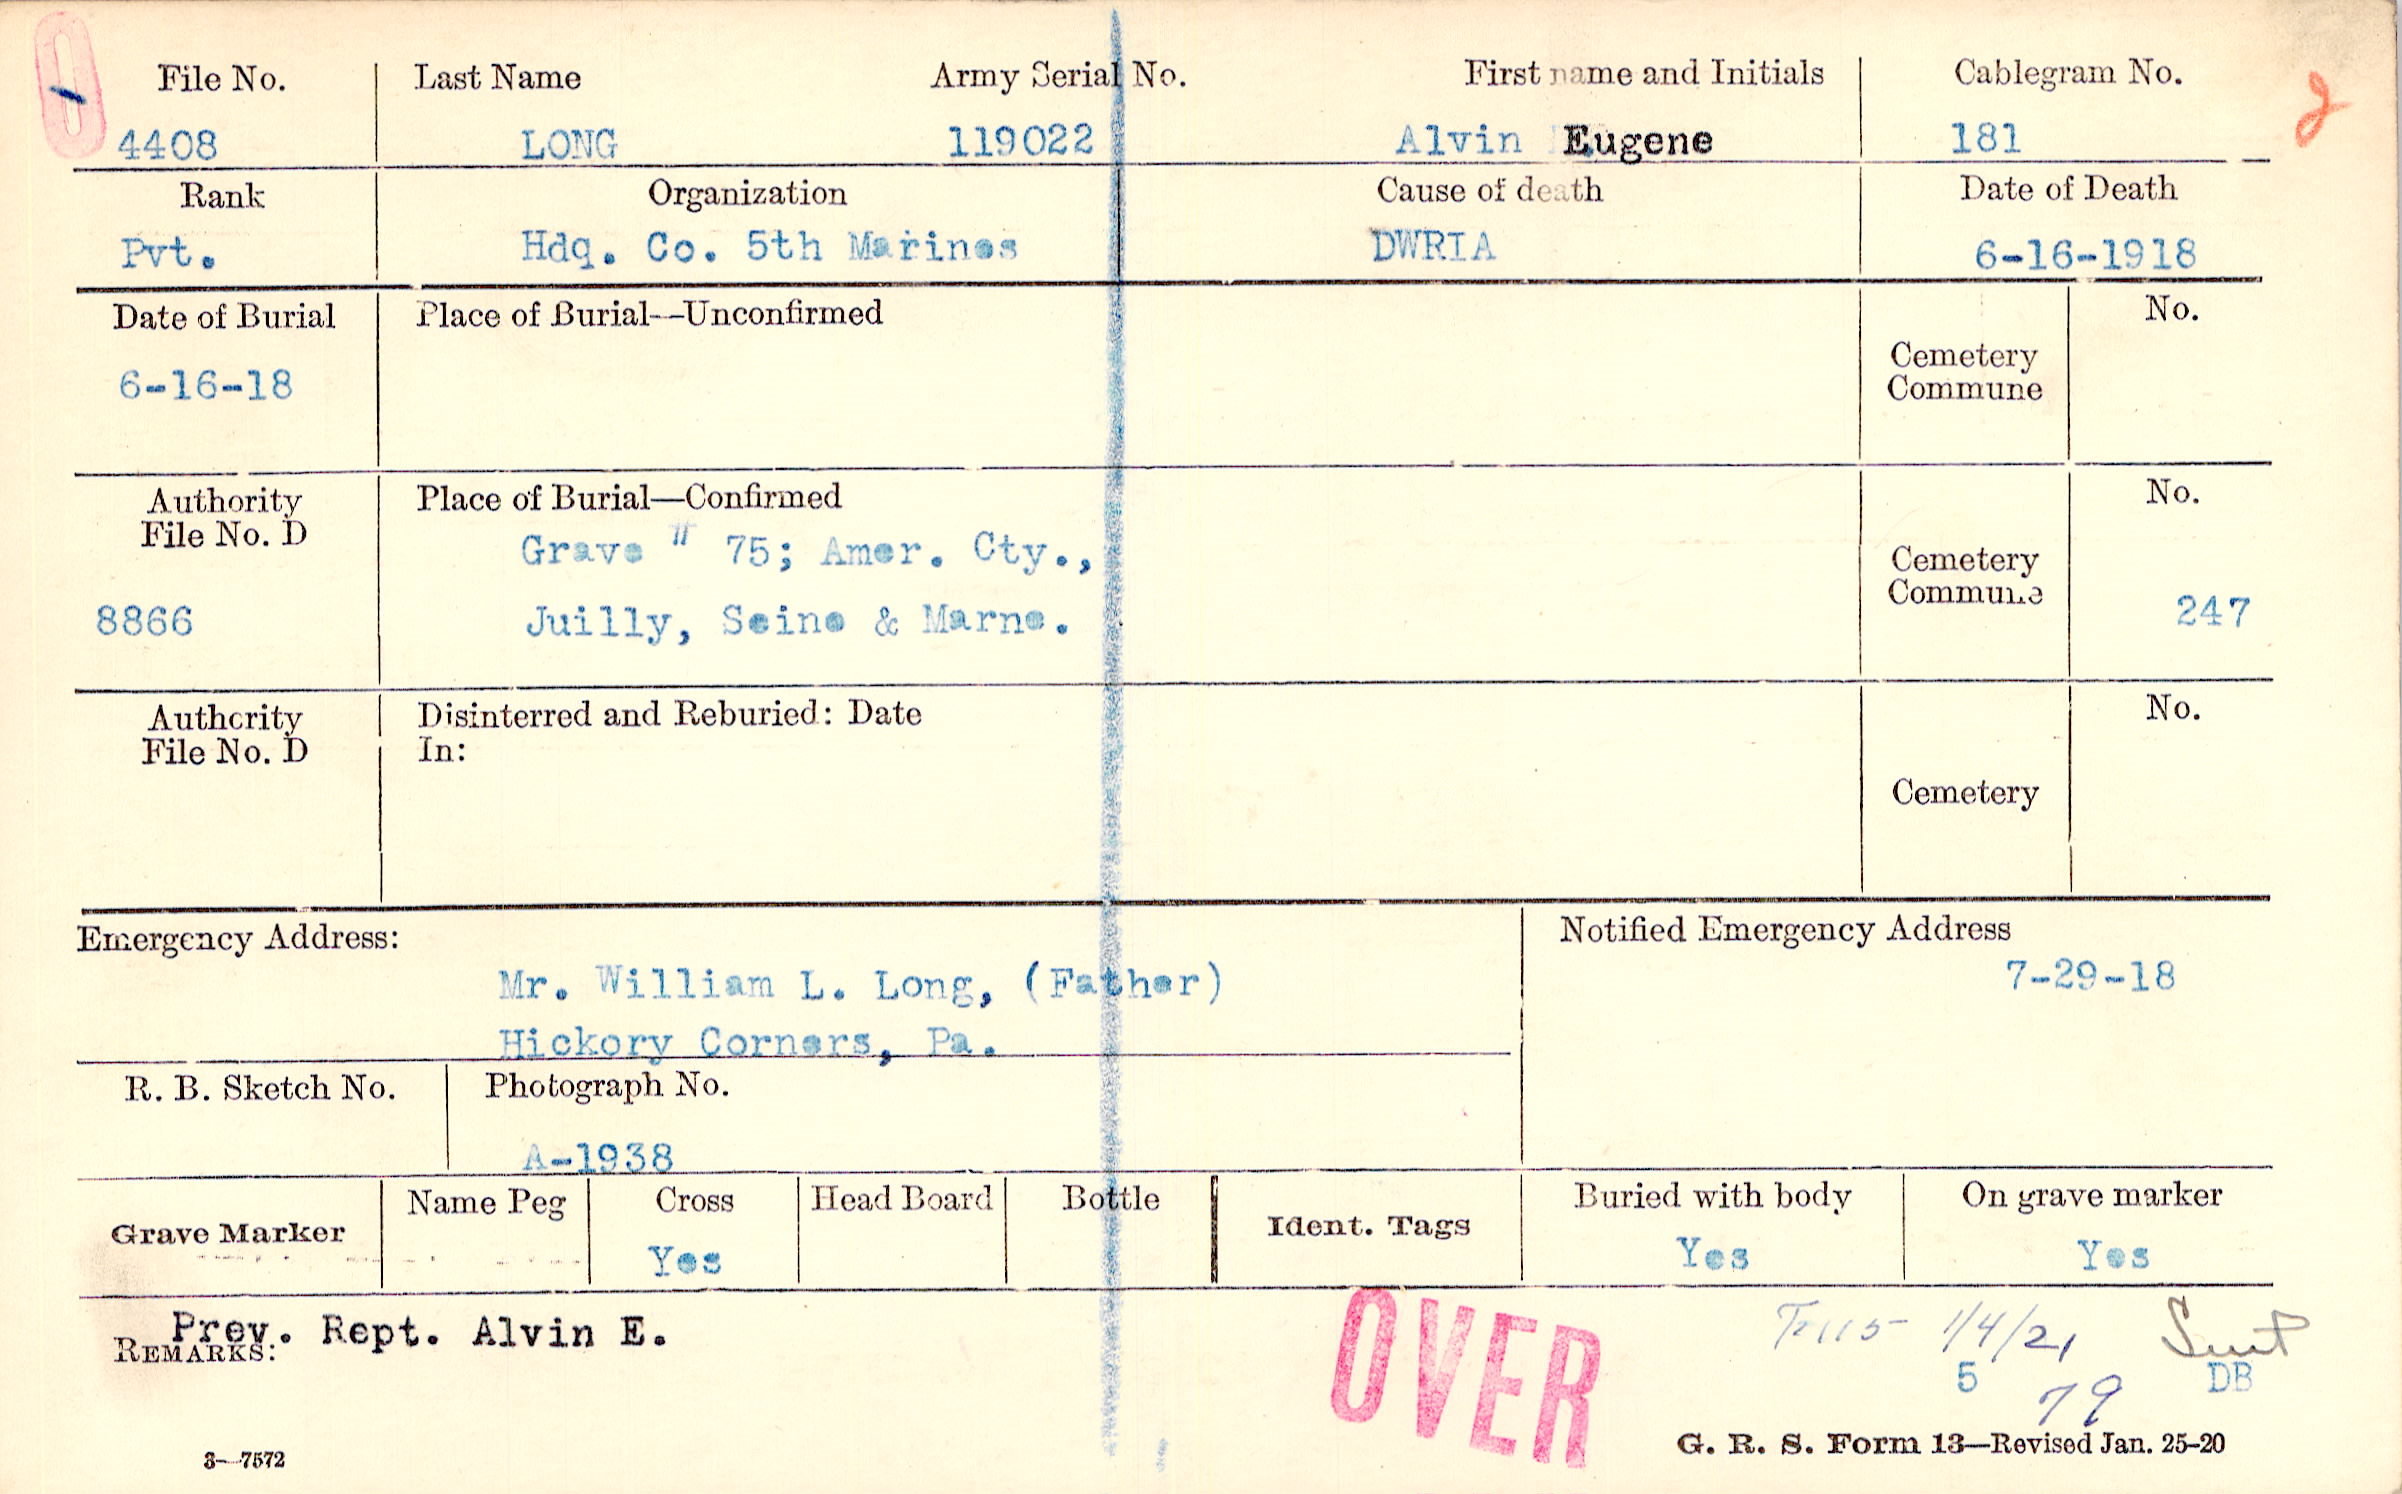 File No.
Last Name
Army Serial No.
First name and Initials
Cablegram No.
2
4408
LONG
119022
Alvin Eugene
181
Rank
Organization
Cause of death
Date of Death
Pvt.
Hdq. Co. 5th Marines
DWRIA
6-16-1918
Date of Burial
Place of Burial—Unconfirmed
No.
Cemetery
Commune
6-16-18
Authority
File No. D
Place of Burial—Confirmed
No.
Grave # 75; Amer. Cty.,
Cemetery
Commune
8866
Juilly, Seine & Marne.
247
Authority
File No. D
Disinterred and Reburied: Date
In:
No.
Cemetery
Emergency Address:
Notified Emergency Address
7-29-18
Mr. William L. Long, (Father)
Hickory Corners, Pa.
R. B. Sketch No.
Photograph No.
A-1938
Grave Marker
Name Peg
Cross
Head Board
Bottle
Ident. Tags
Buried with body
On grave marker
Yes
Yes
Yes
Prev. Rept. Alvin E.
REMARKS:
OVER
1/4/21
Sent
5
DB
79
3—7572
G. R. S. Form 13—Revised Jan. 25-20